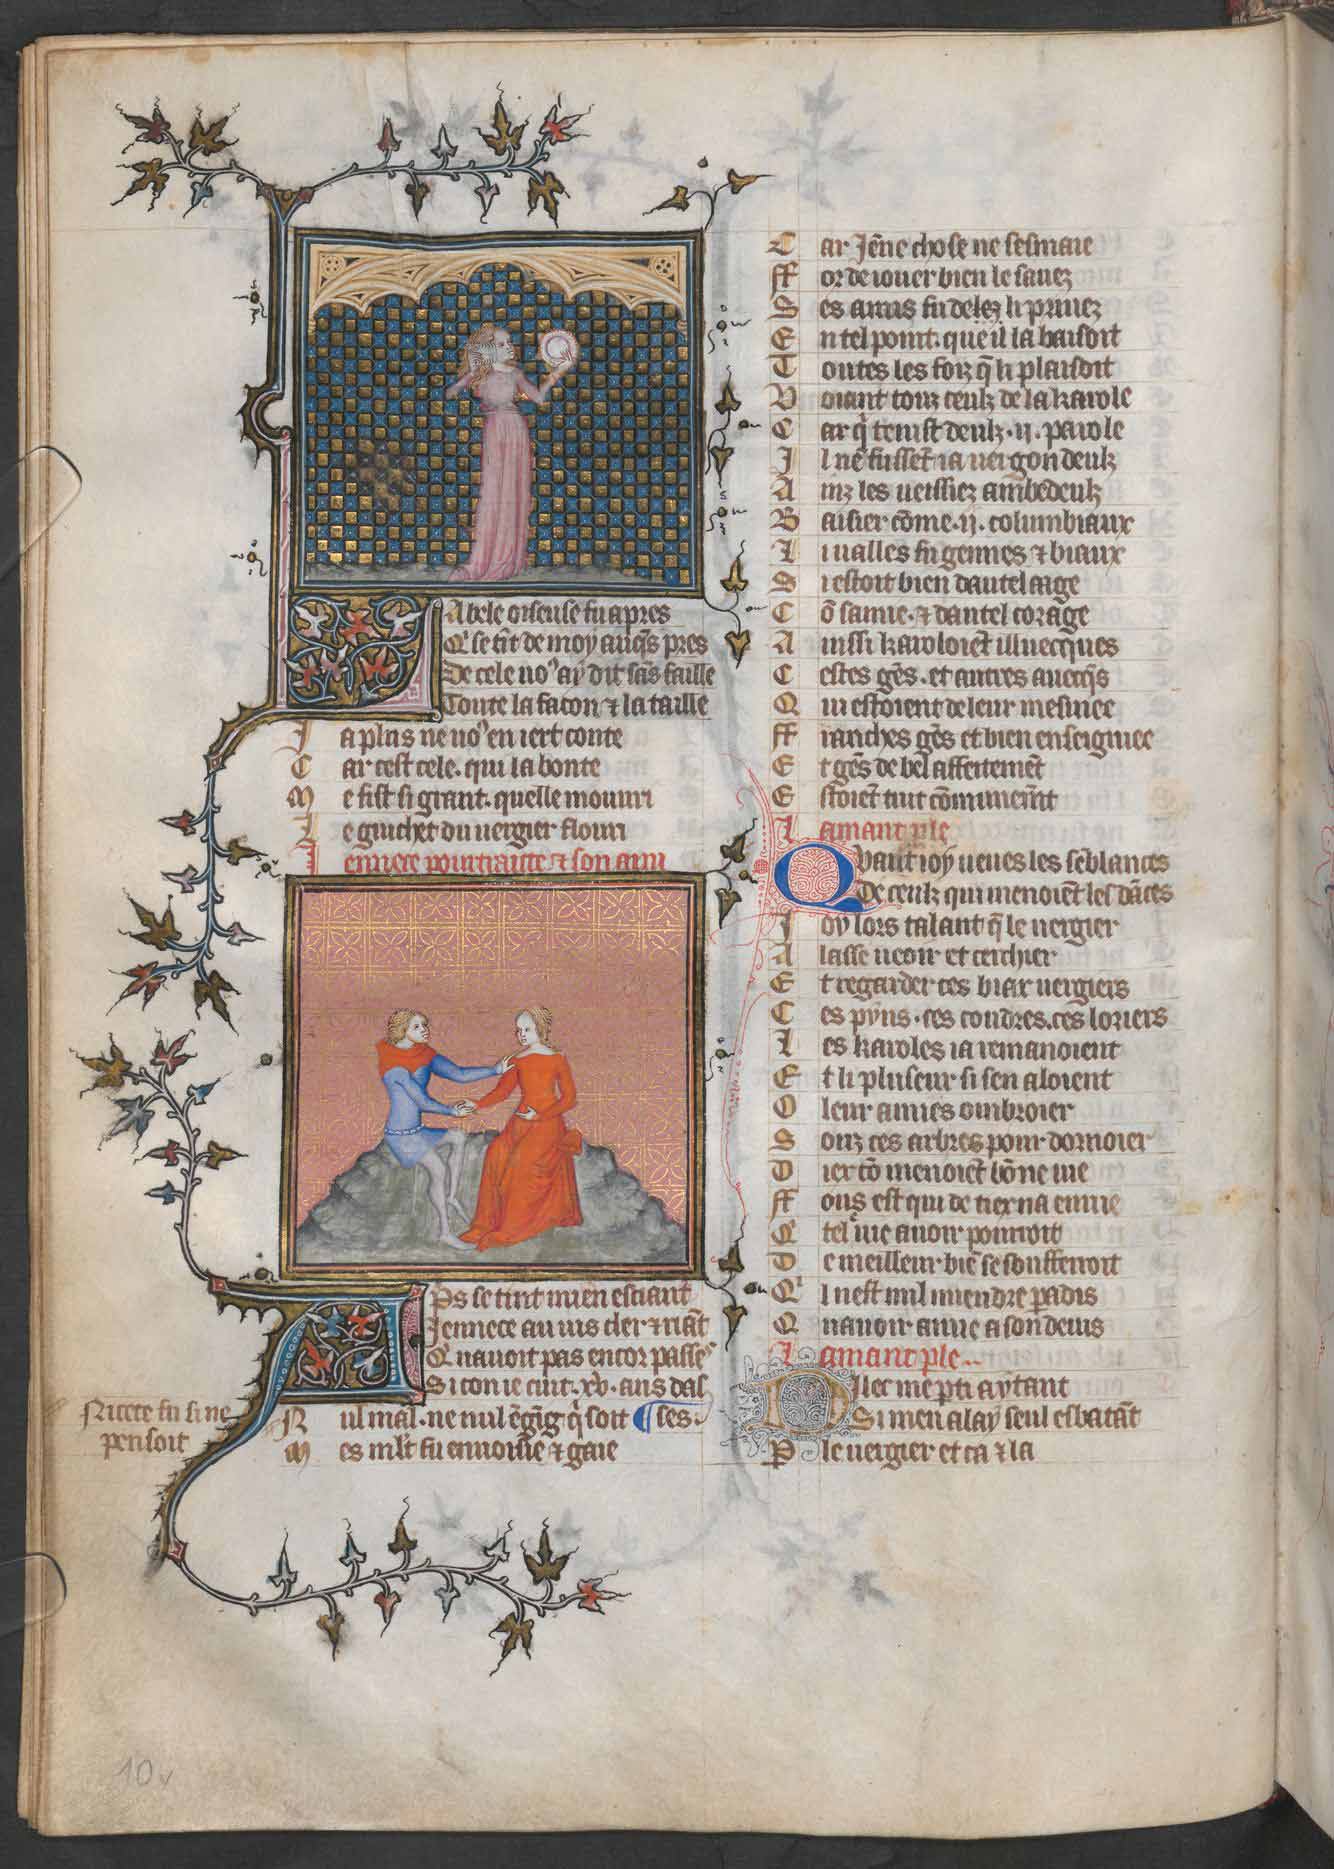 Labele oiseuse fu apres
Q' se tint de moy auq̄s pres
De cele no' ay dit sās faille
Toute la facon ⁊ la taille
Ja plus ne no' en iert conte
Car cest cele. qui la bonte
Me fist si grant. quelle mouuri
Le guichet du uergier flouri
Jennece pourtraite ⁊ son ami
Aps se tint mien esciant
Jennece au uis cler ⁊ riāt
Q' nauoit pas encor passes
Si con ie cuit. xv. ans das
ses.
Nicete fu si ne
pensoit
Nul mal. ne nul ēgīg q̄ soit
Mes ml't fu enuoisie ⁊ gaie
Car Jēne chose ne sesmaie
ffor de iouer bien le sauez
Ses amis fu delez li priuez
En tel point. que il la baisoit
Toutes les foiz q̄ li plaisoit
Voiant touz ceulz de la karole
Car q̄ tenist deulz .ij. parole
Il ne fussēt ia uergondeulz
Ainz les ueissiez ambedeulz
Baisier cōme .ij. columbiaux
Li ualles fu gennes ⁊ biaux
Si estoit bien dautel aage
Cō samie. ⁊ dautel corage
Ainssi karoloiēt illuecques
Cestes gēs. et autres auecq̄s
Qui estoient de leur mesniee
ffranches gēs et bien enseigniee
Et gēs de bel affertemēt
Estoiēt tuit cōmunemt
Lamant ple
Quant ioy ueues les sēblances
De ceulz qui menoiēt les dāces
Joy lors talant q̄ le uergier
Alasse ueoir et cerchier
Et regarder ces biax uergiers
Ces pyns. ces coudres. ces loriers
Les karoles ia remanoient
Et li pluseur si sen aloient
O leur amies ombroier
Souz ces arbres pour dornoier
Diex cō menoiēt bōne uie
ffous est qui de tiex na enuie
Q' tel uie auoir pourroit
De meilleur biē se soufferroit
Ql nest nul miendre padis
Quauoir amie a son deuis
Lamant ple..
Dilec me pti aytant
Si men alay seul esbatāt
P le uergier et ca ⁊ la
10v